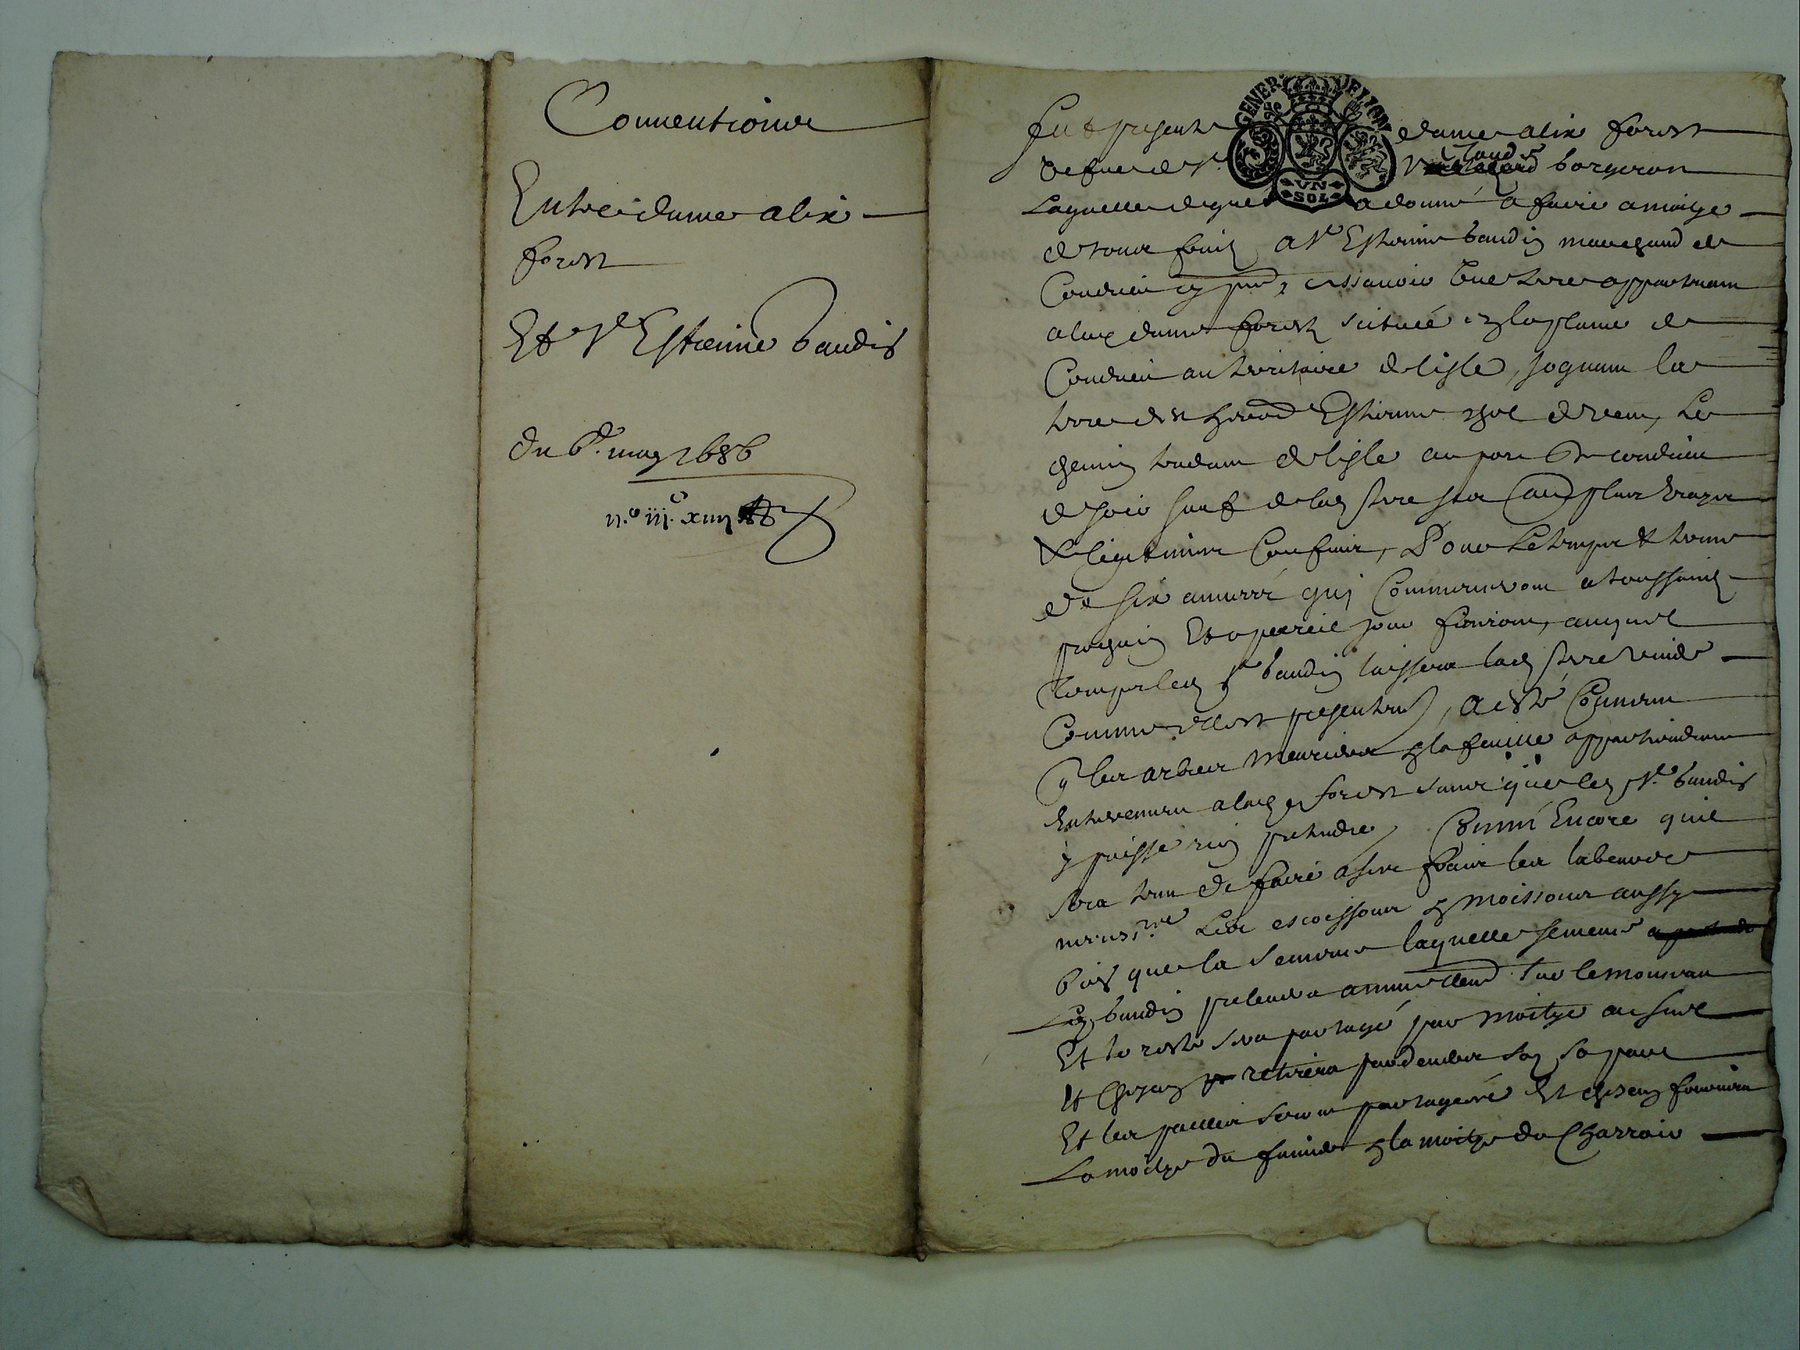 Conventions
Entre dame alix
forest
Et Sr Estienne baudin
du 6e. may 1686
n.o iijc. xiiij
GENER DE LION
VN
SOL
fut presente dame alix forest
vefue de Sr Claude borgeron
Laquelle de gre a donné a faire a moitye
de tous fruis a Sr Estienne baudin marchand de
Condrieu cy pnt, assauoir une terre appartenant
a lad dame forest scituée en la plaine de
Condrieu au territoire de lisle, joignant la
terre de Estienne de vent, Le
chemin tendant de lisle au port de condrieu
de soir sauf de lad terre ses plus vrayes
& legitimes Confins, Pour le temps & terme
de six années qui Commenceront a toussains
prochain Et a pareil jour finiront, auquel
temps led Sr baudin laissera lad terre vuide
Comme elle est presentement, a esté Conuenu
q les arbres meuriers & la feuille appartiendront
Entierement a lad forest sans que led Sr. baudin
y puisse rien pretendre, Comme Encore quil
sera tenu de faire a ses frais les labeurs
necess.res Les escoissour & moissons aussy
bien que la semence laquelle semence
Led baudin prelevera annuellemt sur le monceau
Et le reste sera partagé par moitye au suel
Et Chacun retirera par deuers soy sa part
Et les pailles seront partagées Et chacun fournira
La moitye du fumier & la moitye du Charroir